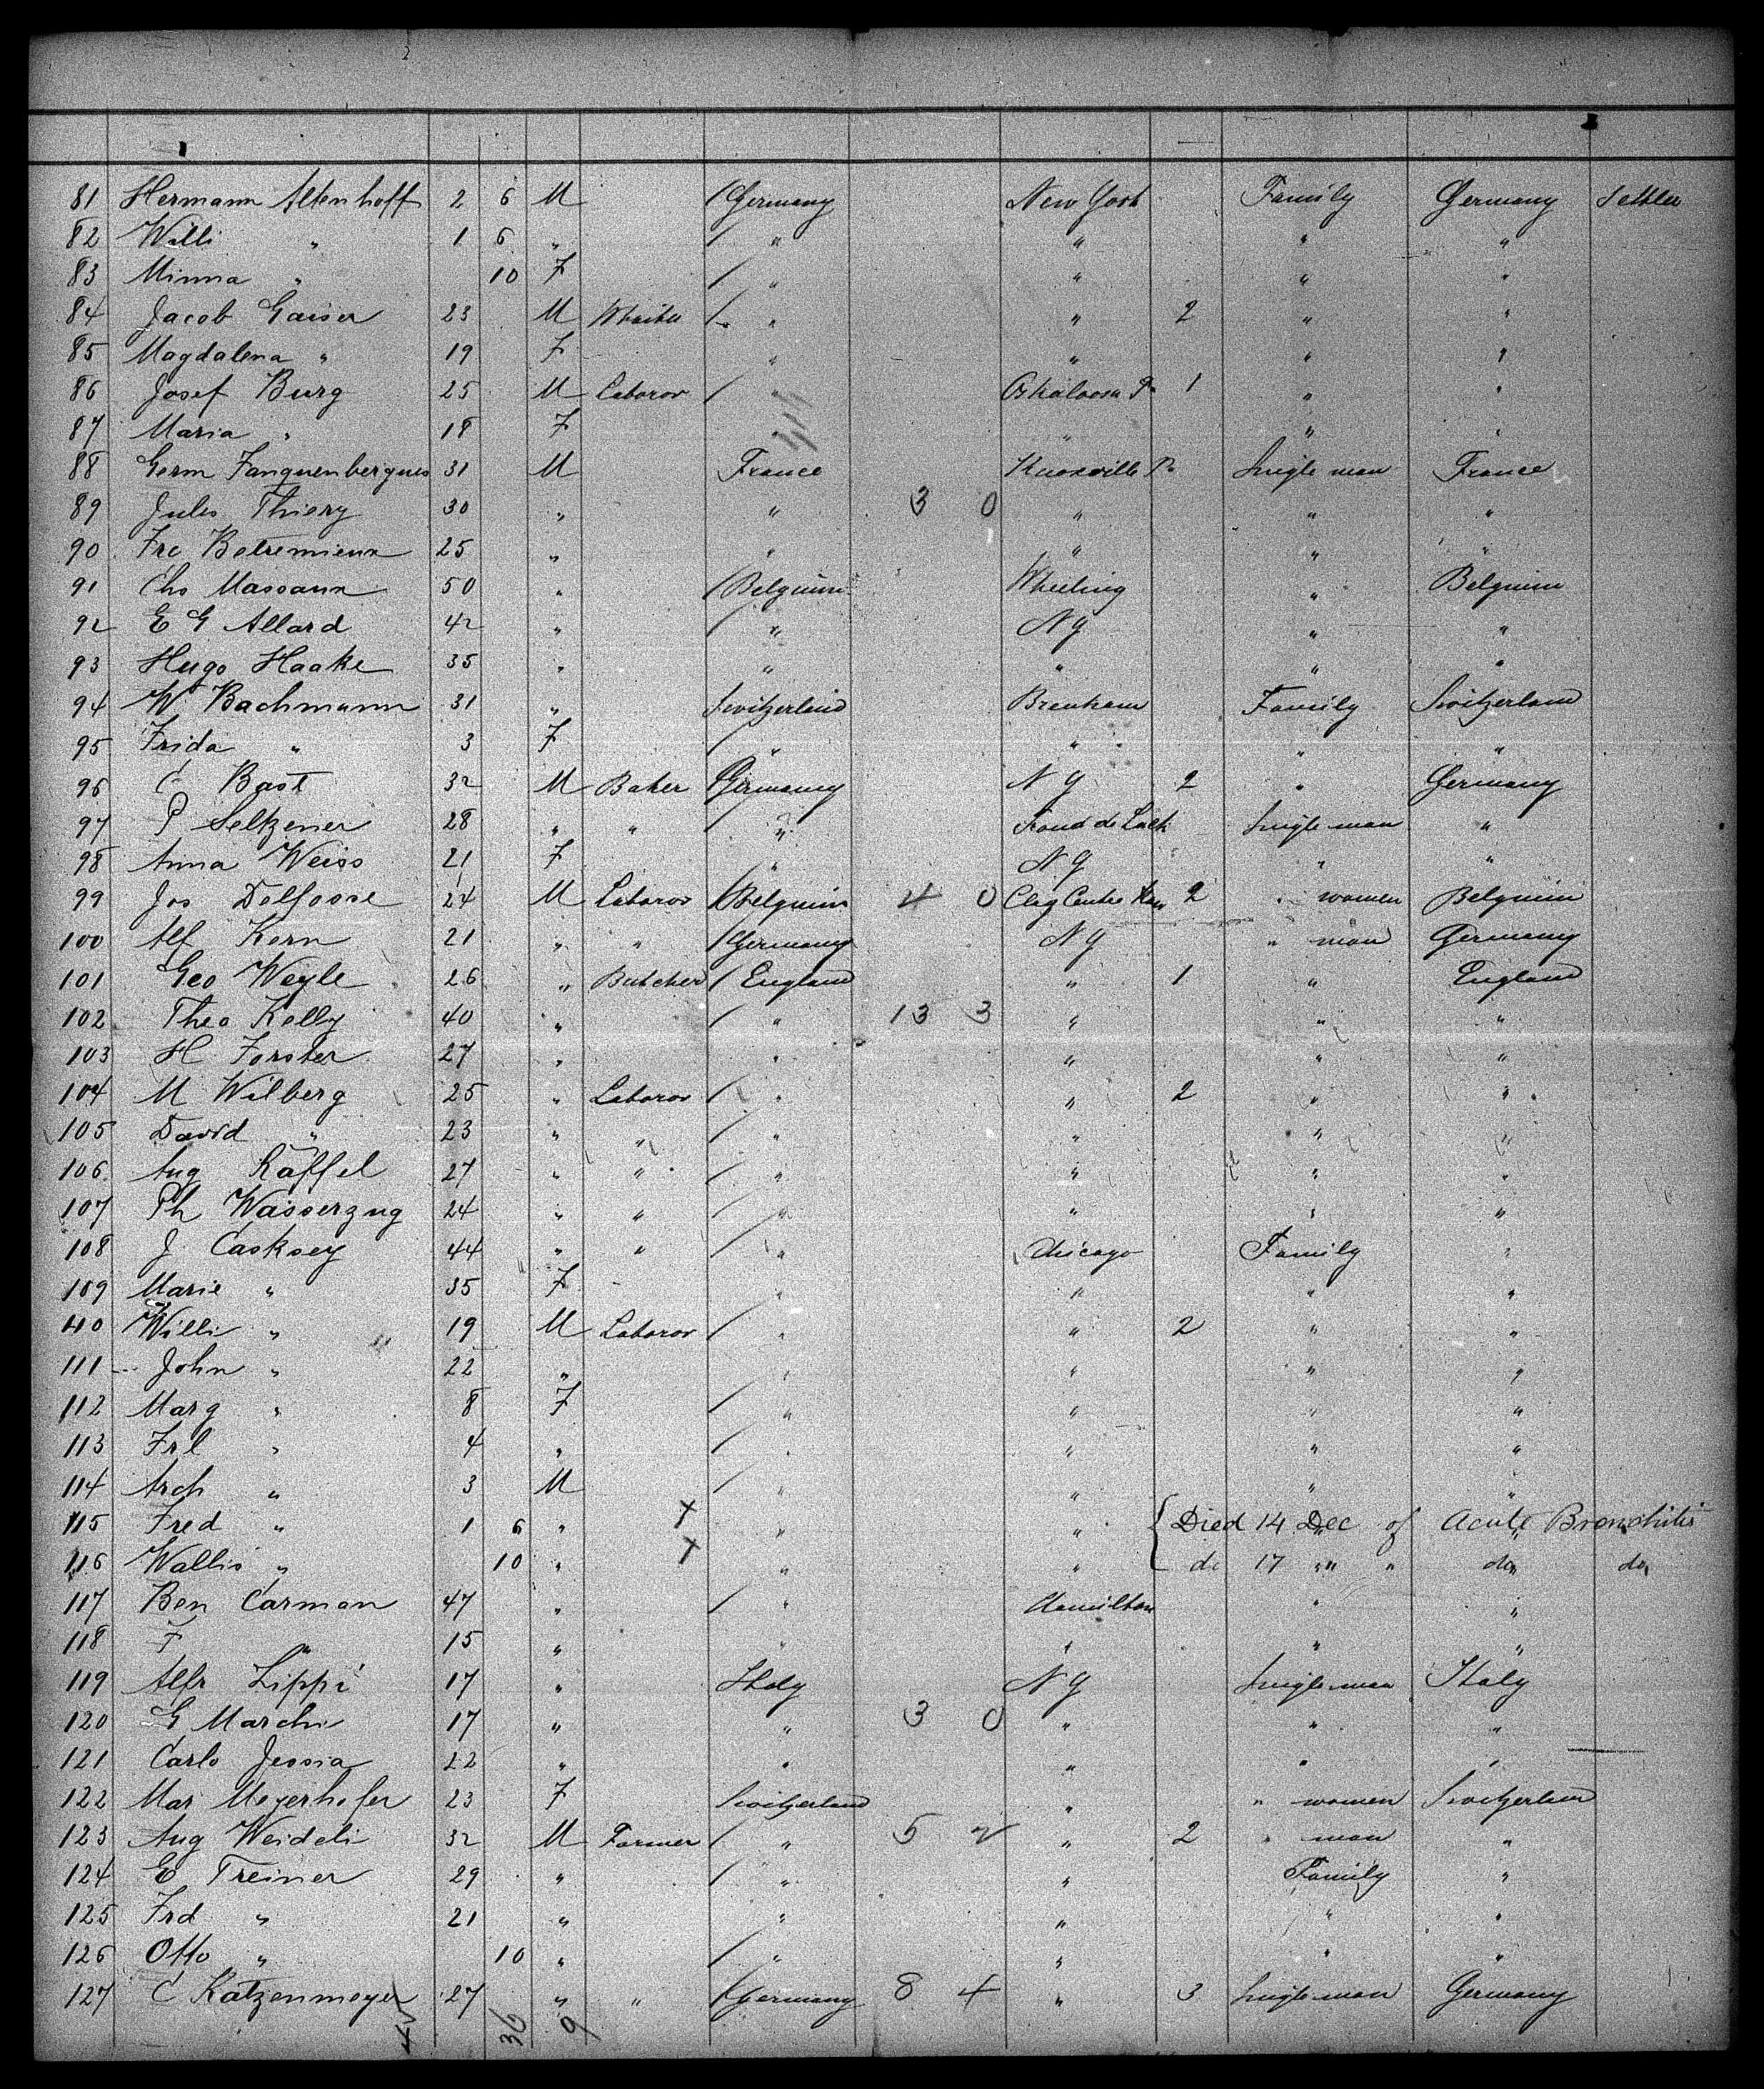 81 Hermann Altenhoff 2 6 M Germany New York Family Germany Settler
82 Willi " 1 6 " " " " "
83 Minna " 10 F " " " "
84 Jacob Gaiser 23 M " " 2 " "
85 Magdalena " 19 F " " " "
86 Josef Burg 25 M Laboror " Oskaloosa 1 " "
87 Maria " 18 F " " " "
88 Germ Fanquenbergues 31 M France Knoxville Single man France
89 Jules Thiery 30 " " 3 0 " " "
90 Fre Betremieux 25 " " " " "
91 Chs Massaux 50 " Belgium Wheeling " Belgium
92 E G Allard 42 " " N Y " "
93 Hugo Haake 35 " " " " "
94 W Bachmann 31 " Switzerland Brenham Family Switzerland
95 Frida " 3 F " " " "
96 C Bast 32 M Baker Germany N Y 2 " Germany
97 P Seltzener 28 " " " Froud de Lack Single man "
98 Anna Weiss 21 F " N Y " "
99 Jos Delfosse 24 M Laboror Belgium 4 0 Clay Centre Kan 2 " women Belgium
100 Alf Kern 21 " " Germany N Y " man Germany
101 Geo Weyle 26 " Butcher England " 1 " England
102 Theo Kelly 40 " " 13 3 " " "
103 H Forster 27 " " " " "
104 M Wilberg 25 " Laboror " " 2 " "
105 David " 23 " " " " " "
106 Aug Käffel 27 " " " " " "
107 Ph Wasserzug 24 " " " " " "
108 J Casksey 44 " " " Chicago Family "
109 Marie " 35 F " " " "
110 Willi " 19 M Laboror " " 2 " "
111 John " 22 " " " " "
112 Marg " 8 F " " " "
113 Frl " 4 " " " " "
114 Arch " 3 M " " " "
115 Fred " 1 6 " + " " { Died 14 Dec of Acute Bronchitis
116 Wallis " 10 " + " " do 17 " " do do
117 Ben Carman 47 " " Hamilton " "
118 F " 15 " " " " "
119 Alfr Lippi 17 " Italy N Y Single man Italy
120 G Marchi 17 " " 3 0 " " "
121 Carlo Jessia 22 " " " " "
122 Mar Meyerhofer 23 F Switzerland " " women Switzerland
123 Aug Weideli 32 M Farmer " 5 2 " 2 " man "
124 E Treiner 29 " " " Family "
125 Frd " 21 " " " " "
126 Otto " 10 " " " " "
127 C Katzenmeyer 27 " " Germany 8 4 " 3 Single man Germany
36 9